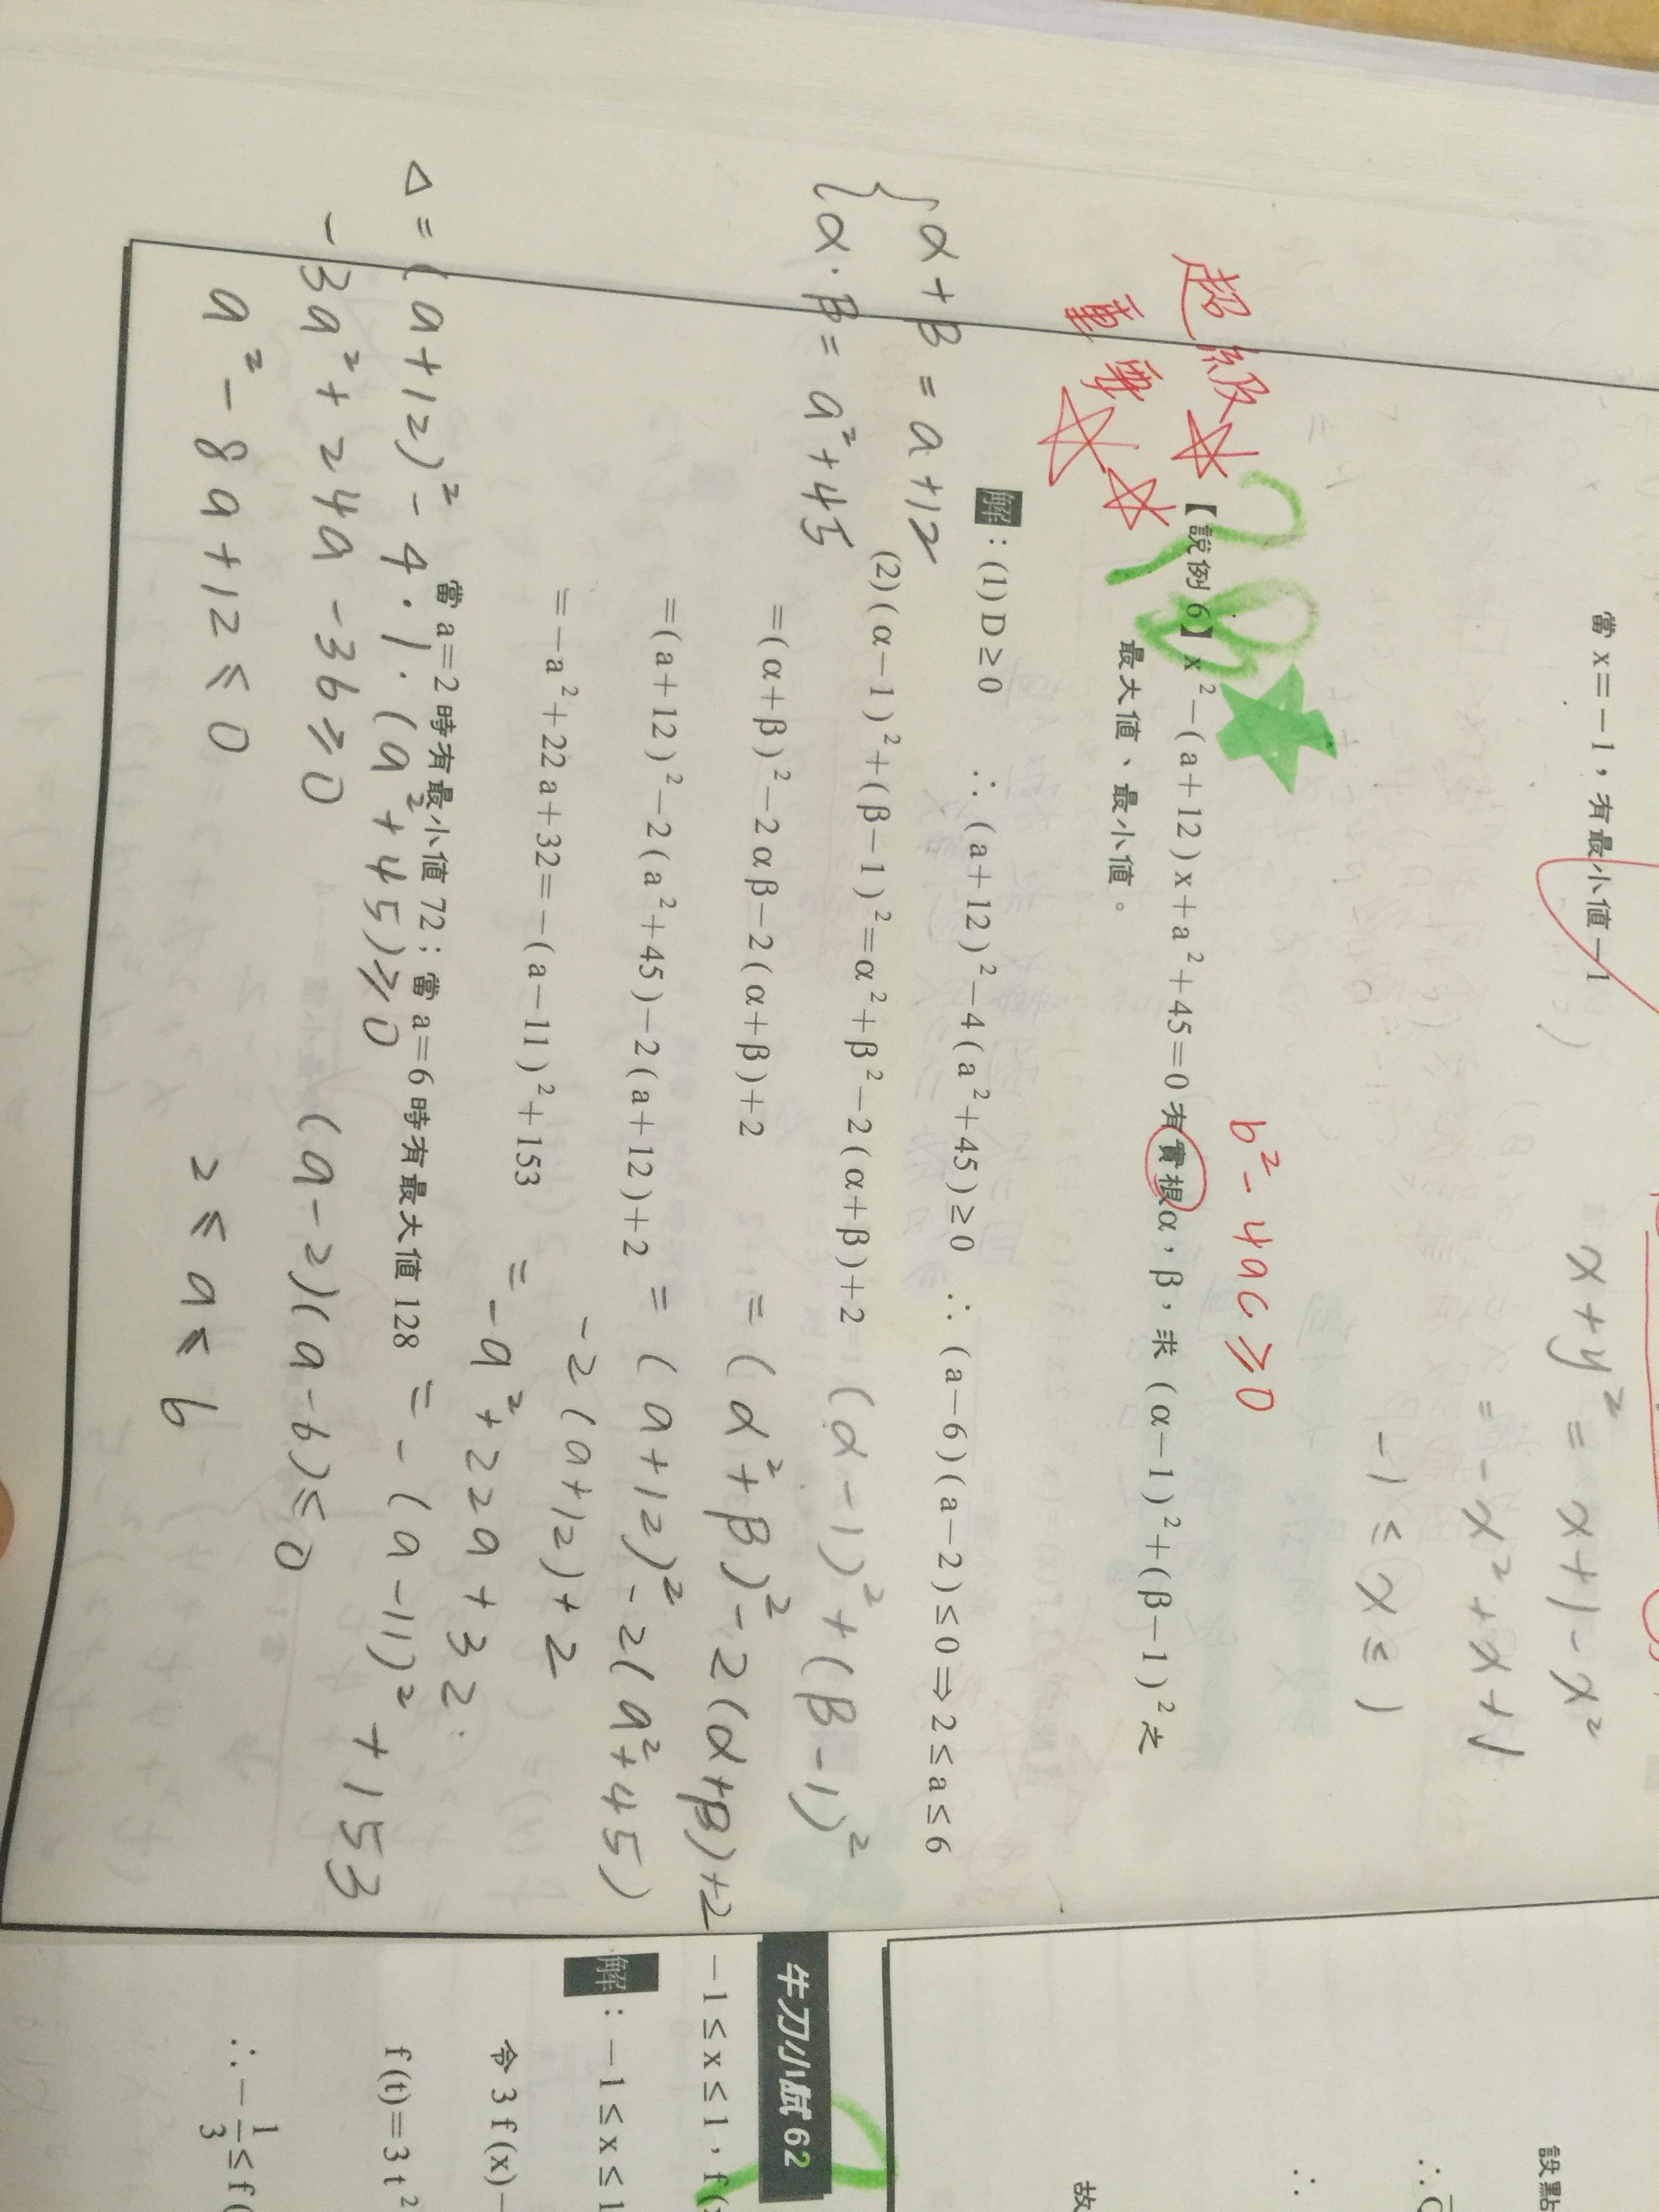 當 x＝－1，有最小值－1
x+y²＝x+1-x²
＝-x²+x+1
-1≤x≤1
b²-4ac≥0
超級
重要
【說例 6】x²－(a＋12)x＋a²＋45＝0 有實根α，β，求 (α－1)²＋(β－1)² 之
最大值、最小值。
解：(1) D≥0　∴ (a＋12)²－4(a²＋45)≥0　∴ (a－6)(a－2)≤0⇒2≤a≤6
α+β＝a+12
α·β＝a²+45
(2) (α－1)²＋(β－1)²＝α²＋β²－2(α＋β)＋2
＝(α＋β)²－2αβ－2(α＋β)＋2
＝(a＋12)²－2(a²＋45)－2(a＋12)＋2
＝－a²＋22a＋32＝－(a－11)²＋153
當 a＝2 時有最小值 72；當 a＝6 時有最大值 128
(α-1)²+(β-1)²
＝(α²+β)²-2(α+β)+2
＝(a+12)²-2(a²+45)
-2(a+12)+2
＝-a²+22a+32
＝-(a-11)²+153
△＝(a+12)²-4·1·(a²+45)≥0
-3a²+24a-36≥0
a²-8a+12≤0
(a-2)(a-6)≤0
2≤a≤6
設點
∴
∴
故
牛刀小試 62
－1≤x≤1，f(
解：－1≤x≤1
令 3f(x)－
f(t)＝3t²
∴－1/3≤f(